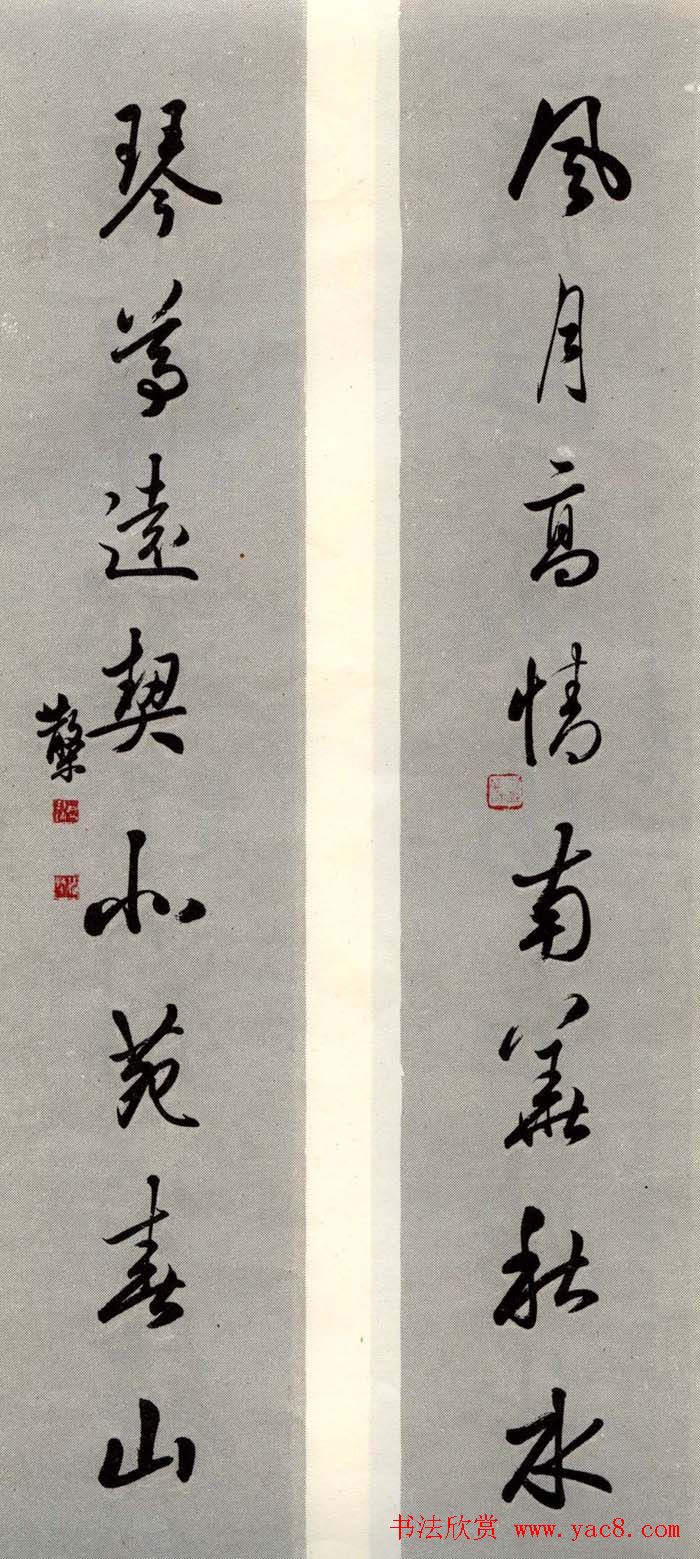 風月高情南華秋水
琴尊遠契北苑春山
书法欣赏 www.yac8.com